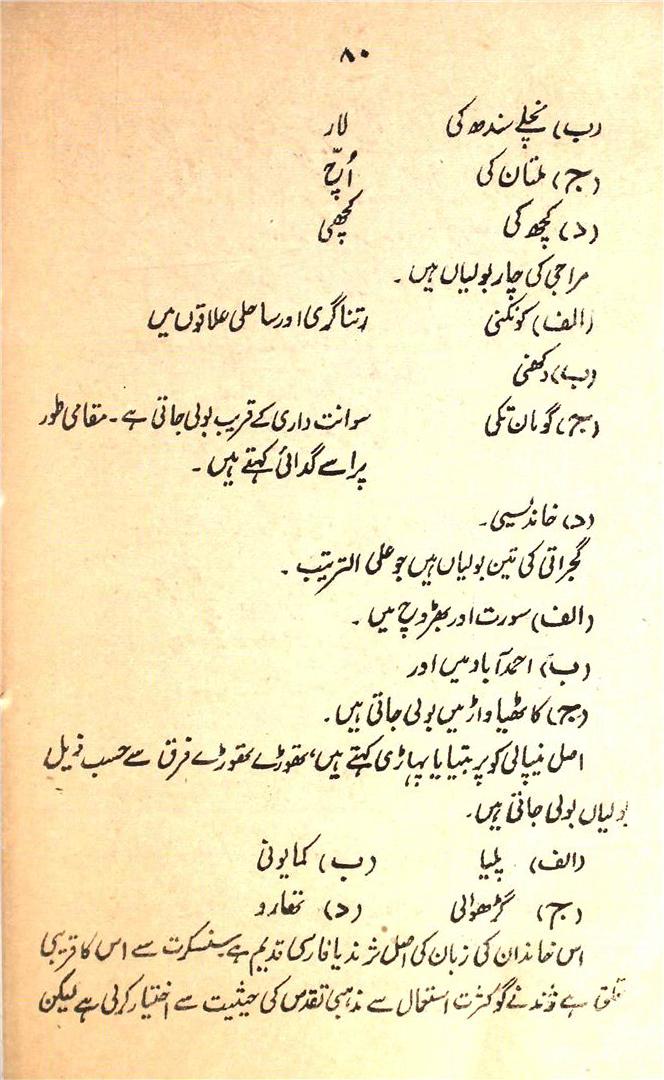 ۸۰
(ب) نچلے سندھ کی لار
(ج) ملتان کی اُچّ
(د) کچھ کی کچھی
مراجی کی چار بولیاں ہیں ۔
(الف) کونکنی رتناگری اور ساحلی علاقوں میں
(ب) دکھنی
(ج) گومان تکی سوانت داری کے قریب بولی جاتی ہے ۔ مقامی طور
پر اسے گدائی کہتے ہیں ۔
(د) خاندیسی۔
گجراتی کی تین بولیاں ہیں جو علی الترتیب ۔
(الف) سورت اور بھڑوچ میں ۔
(ب) احمدآباد میں اور
(ج) کاٹھیاواڑ میں بولی جاتی ہیں ۔
اصل نیپالی کو پربتیا یا پہاڑی کہتے ہیں، تھوڑے تھوڑے فرق سے حسب ذیل
بولیاں بولی جاتی ہیں۔
(الف) پلیا (ب) کمایونی
(ج) گڑھوالی (د) تھارو
اس خاندان کی زبان کی اصل ژند یا فارسی قدیم ہے سنسکرت سے اس کا قریبی
تعلق ہے ژند نے گو کثرت استعمال سے مذہبی تقدس کی حیثیت سے اختیار کرلی ہے لیکن